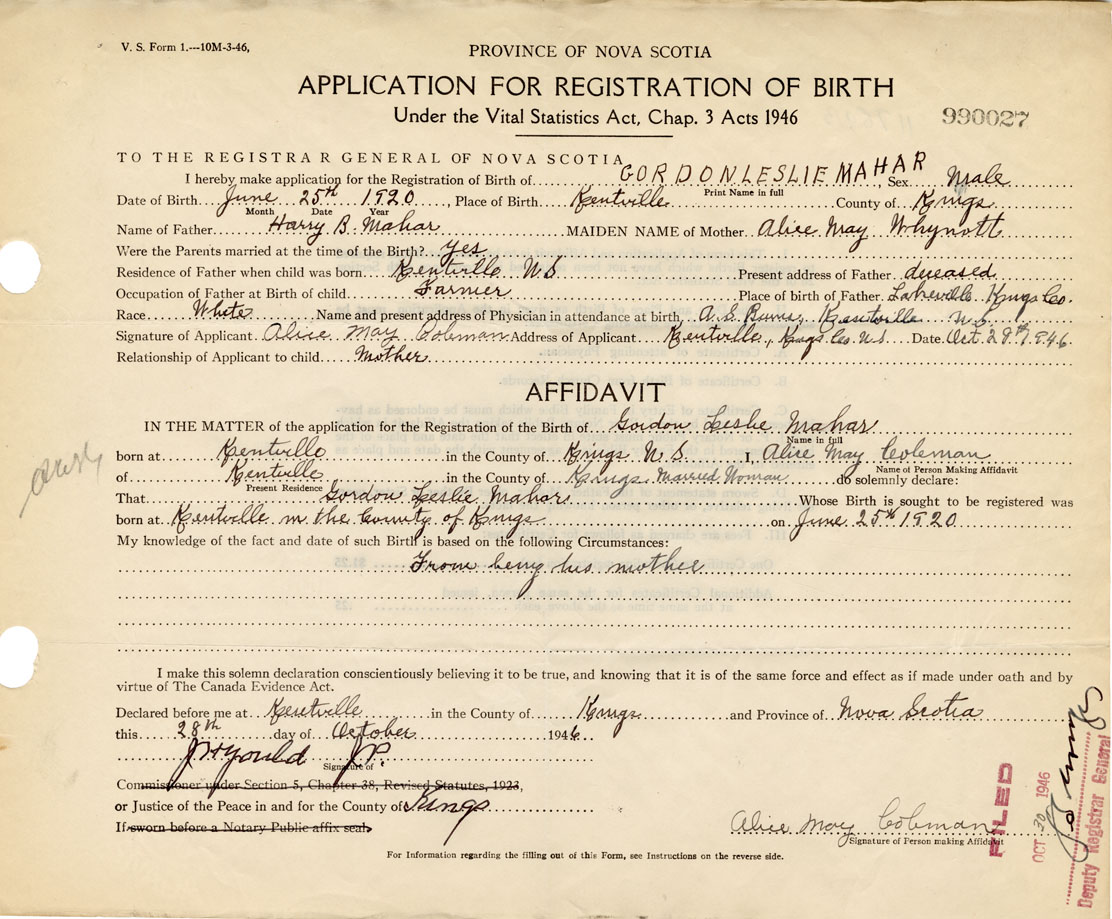 V. S. Form 1.---10M-3-46,
PROVINCE OF NOVA SCOTIA
APPLICATION FOR REGISTRATION OF BIRTH
Under the Vital Statistics Act, Chap. 3 Acts 1946
990027
TO THE REGISTRAR GENERAL OF NOVA SCOTIA
I hereby make application for the Registration of Birth of GORDON LESLIE MAHAR, Sex Male
Print Name in full
Date of Birth June 25th 1920, Place of Birth Kentville County of Kings
Month Date Year
Name of Father Harry B. Mahar MAIDEN NAME of Mother Alice May Whynott
Were the Parents married at the time of the Birth? yes
Residence of Father when child was born Kentville N S. Present address of Father deceased
Occupation of Father at Birth of child Farmer Place of birth of Father Lakeville Kings Co.
Race White Name and present address of Physician in attendance at birth, A. E. Kentville N S.
Signature of Applicant Alice May Coleman Address of Applicant Kentville, Kings Co. N S Date Oct 28th 1946.
Relationship of Applicant to child Mother
AFFIDAVIT
IN THE MATTER of the application for the Registration of the Birth of Gordon Leslie Mahar
Name in full
born at Kentville in the County of Kings N S. I, Alice May Coleman
Name of Person Making Affidavit
of Kentville in the County of Kings Married Woman do solemnly declare:
Present Residence
That Gordon Leslie Mahar Whose Birth is sought to be registered was
born at Kentville in the County of Kings on June 25th 1920
My knowledge of the fact and date of such Birth is based on the following Circumstances:
From being his mother
I make this solemn declaration conscientiously believing it to be true, and knowing that it is of the same force and effect as if made under oath and by
virtue of The Canada Evidence Act.
Declared before me at Kentville in the County of Kings and Province of Nova Scotia
this 28th day of October 1946.
Gould J.P.
Signature of
Commissioner under Section 5, Chapter 38, Revised Statutes, 1923,
or Justice of the Peace in and for the County of Kings
If sworn before a Notary Public affix seal.
Alice May Coleman
Signature of Person making Affidavit
For Information regarding the filling out of this Form, see Instructions on the reverse side.
FILED
OCT 30 1946
Deputy Registrar General